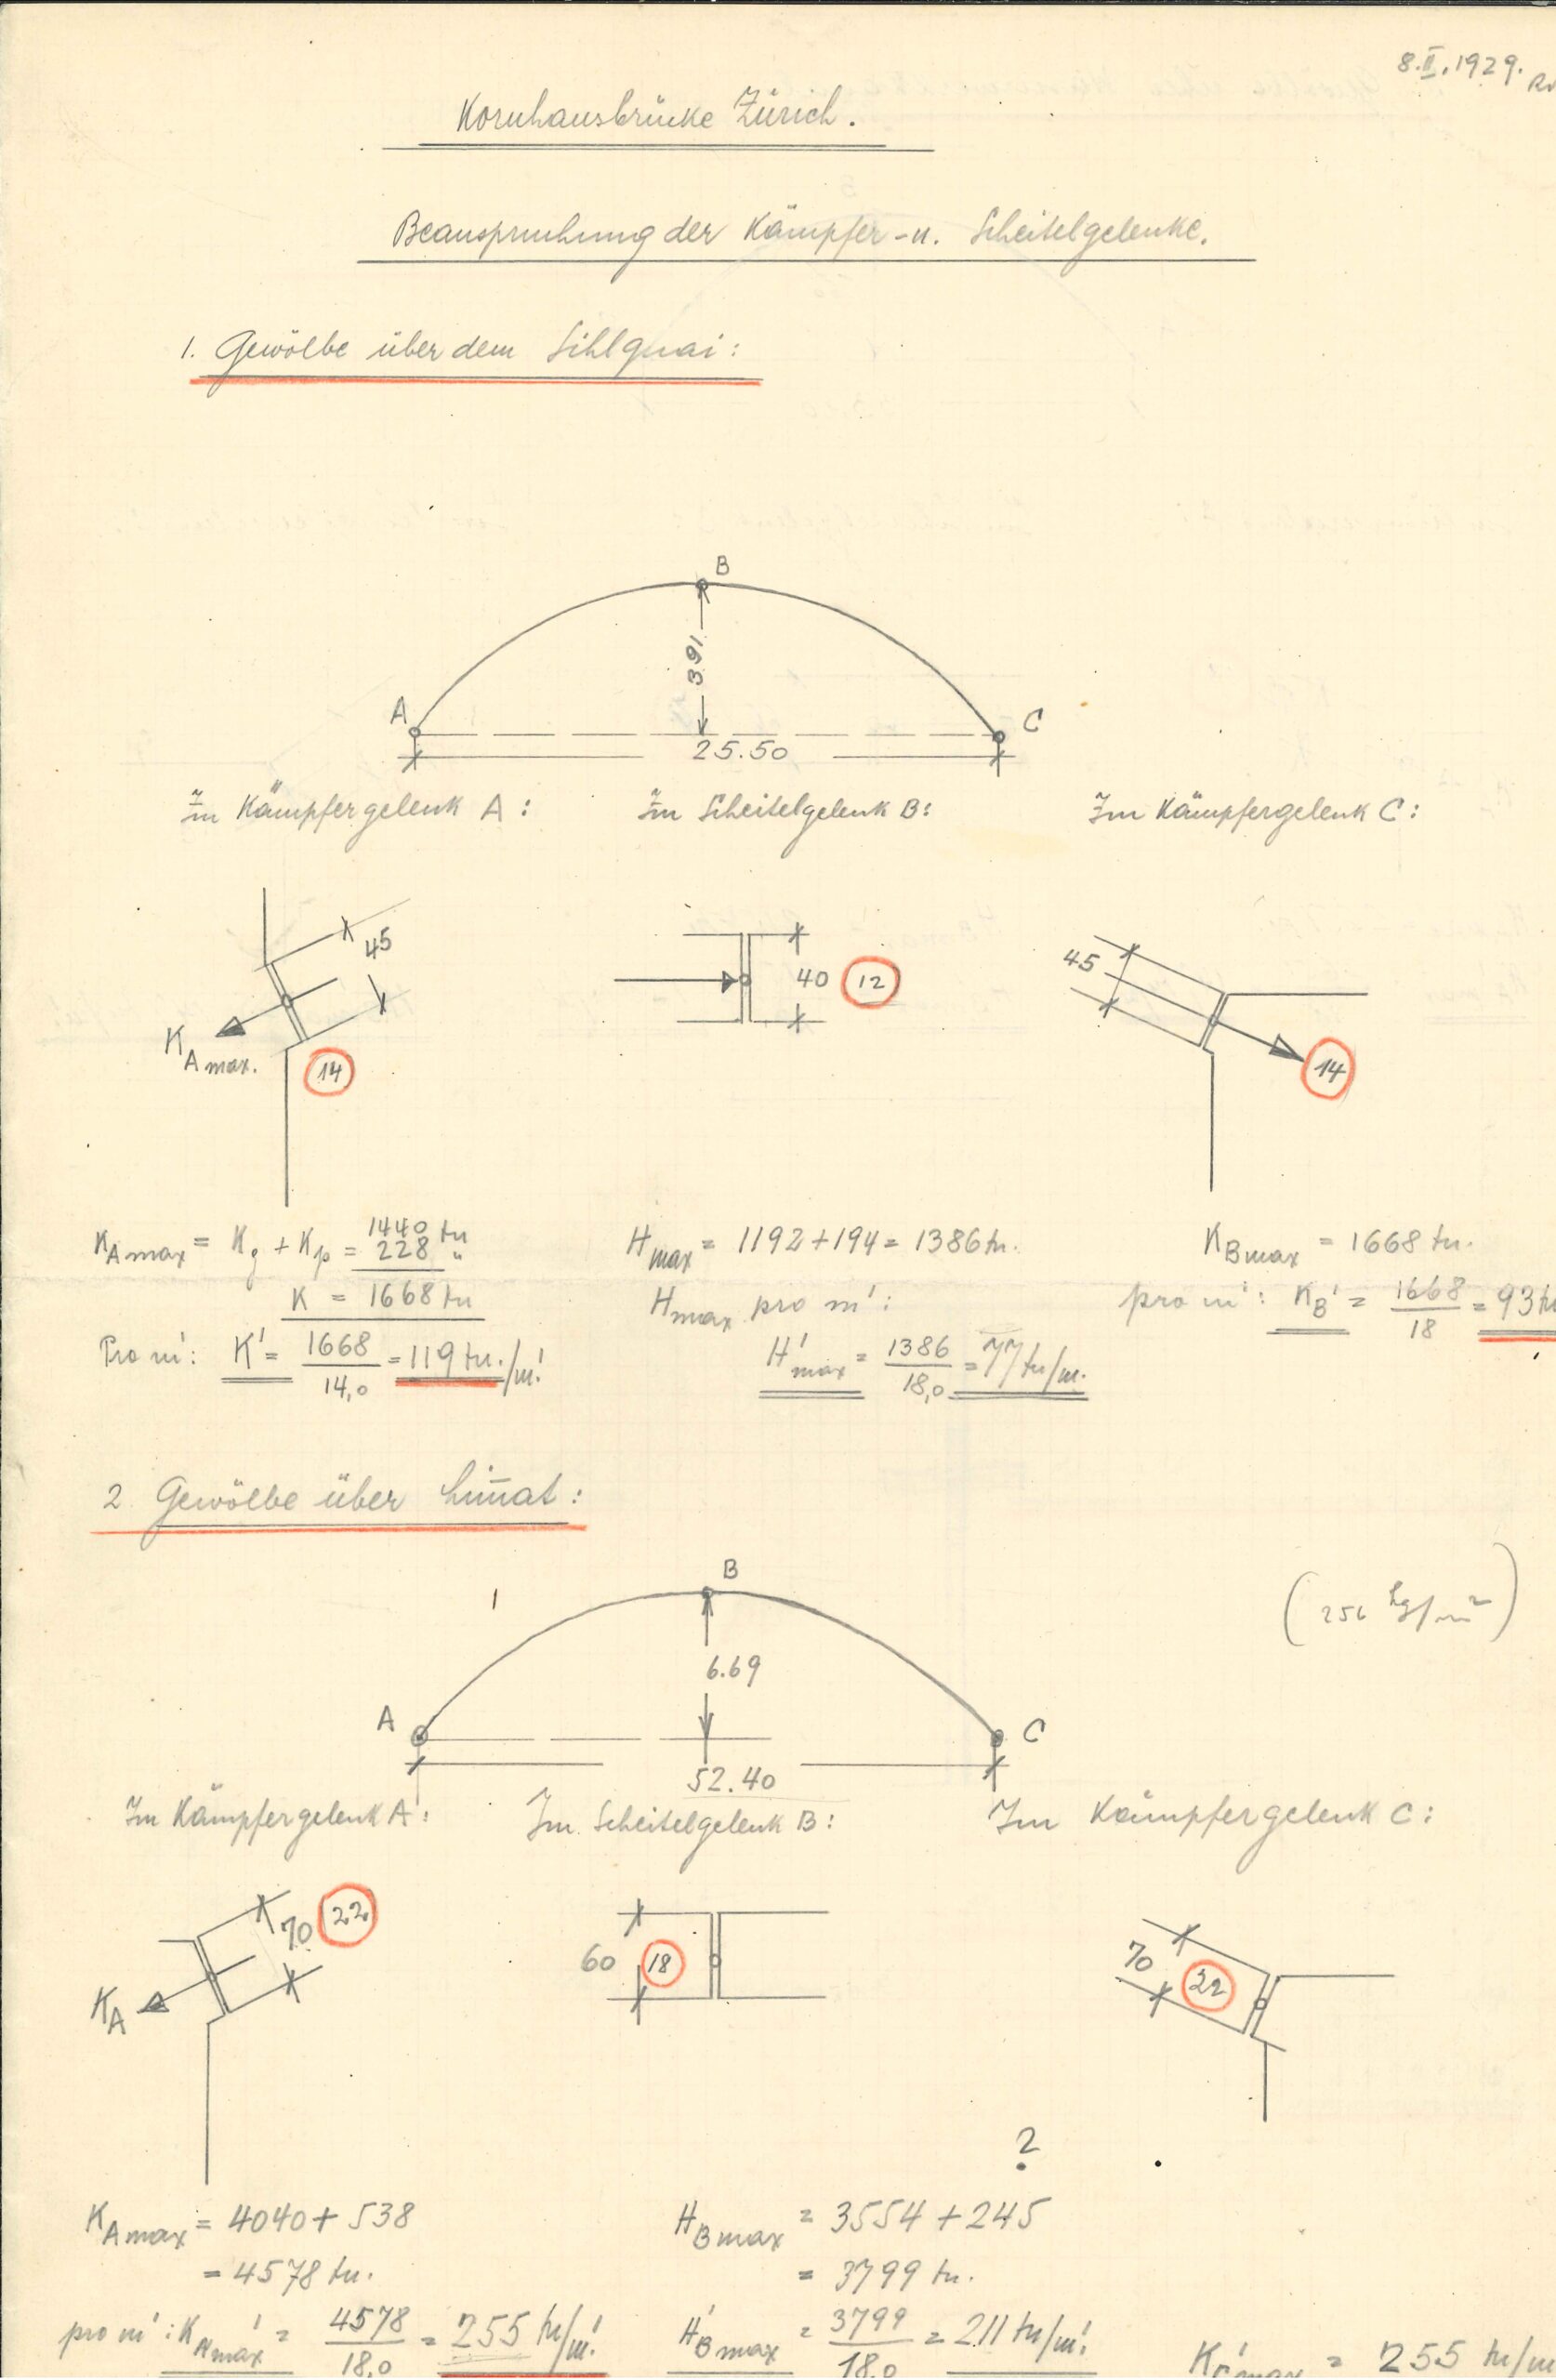 8.II.1929.
Kornhausbrücke Zürich.
Beanspruchung der Kämpfer- u. Scheitelgelenke.
1. Gewölbe über dem Sihlquai:
B
3.91
A
C
25.50
Im Kämpfergelenk A:
Im Scheitelgelenk B:
Im Kämpfergelenk C:
45
K A max.
14
40
12
45
14
K A max = K g + K p = 1440 tn
228 "
K = 1668 tn
Pro m': K' = 1668 / 14,0 = 119 tn./m'.
H max = 1192 + 194 = 1386 tn.
H max pro m':
H' max = 1386 / 18,0 = 77 tn/m.
K B max = 1668 tn.
pro m': K B' = 1668 / 18 = 93 tn
2 Gewölbe über Lim̄at:
B
6.69
A
C
52.40
(256 kg/m²)
Im Kämpfergelenk A:
Im Scheitelgelenk B:
Im Kämpfergelenk C:
70
22
K A
60
18
70
22
K A max = 4040 + 538
= 4578 tn.
pro m': K A max' = 4578 / 18,0 = 255 tn/m'.
?
H B max = 3554 + 245
= 3799 tn.
H' B max = 3799 / 18,0 = 211 tn/m'.
K' C max = 255 tn/m